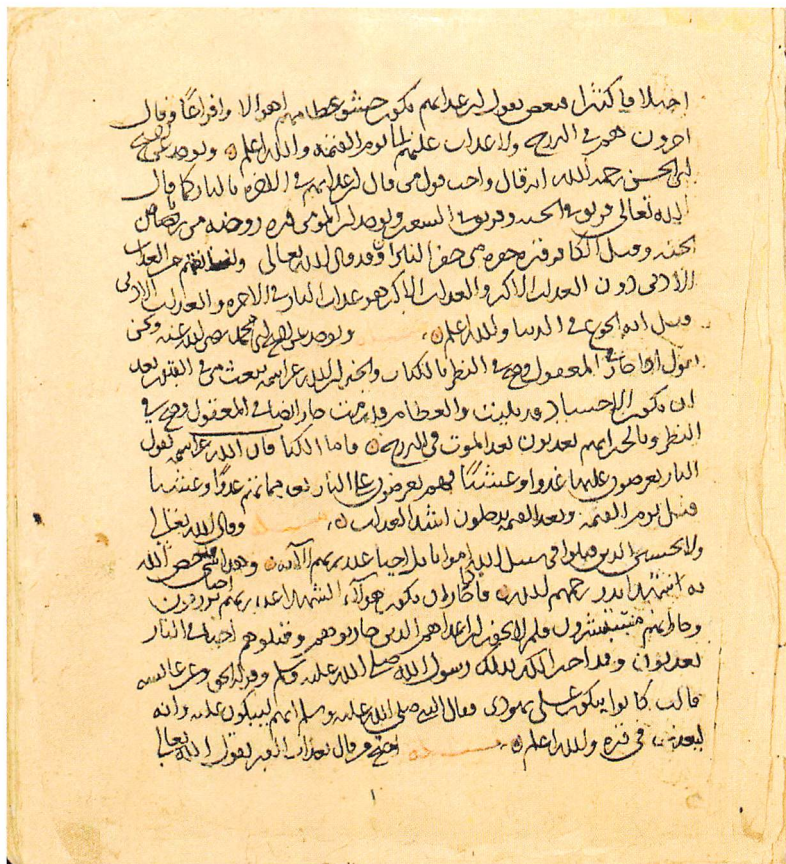 اختلافا كثيرا فبعض يقول ان عذابهم يكون حشو عظامهم اهوالا وافزاعا وقال
اخرون هم في البرزخ ولا عذاب عليهم الى يوم القيمة والله اعلم ويوجد عن
ابي الحسن رحمه الله انه قال واحب قول من قال ان عذابهم في الاخرة بالنار كما قال
الله تعالى فريق في الجنة وفريق في السعير ويوجد ان المومن قبره روضة من رياض
الجنة وقيل الكافر قبره حفرة من حفر النار وقد قال الله تعالى ولنذيقنهم من العذاب
الأدنى دون العذاب الاكبر والعذاب الاكبر هو عذاب النار في الاخرة والعذاب الادنى
وقيل انه الجوع في الدنيا والله اعلم ويوجد عن ابي محمد رضي الله عنه ونحن
نقول اذا جاز في المعقول وصح في النظر بالكتاب والخبر ان الله عز اسمه يبعث من في القبور بعد
ان تكون الاجساد قد بليت والعظام قد رمت جاز ايضا في المعقول وصح في
النظر وبالخبر انهم يعذبون بعد الموت في البرزخ فاما الكتاب فان الله عز اسمه يقول
النار يعرضون عليها غدوا وعشيا فهم يعرضون على النار بعد مماتهم غدوا وعشيا
قبل يوم القيمة وبعد القيمة يدخلون اشد العذاب مسئلة وقال الله تعالى
ولا تحسبن الذين قتلوا في سبيل الله امواتا بل احيا عند ربهم الآية وهذا شي خص الله
به شهدا بدر رحمهم الله فاذا جاز ان يكون هولآء الشهدا عند ربهم احيا يرزقون
وجاز انهم مستبشرون فلم لا يجوز ان اعداهم الذين حاربوهم وقتلوهم احيا في النار
يعذبون وقد اخبر الله بذلك رسول الله صلى الله عليه وسلم وقوله الحق وعن عايشة
قالت كانوا يبكون على يهودي فقال النبي صلى الله عليه وسلم انهم ليبكون عليه وانه
ليعذب في قبره والله اعلم مسئلة ومن قال بعذاب القبر يقول الله تعالى
١